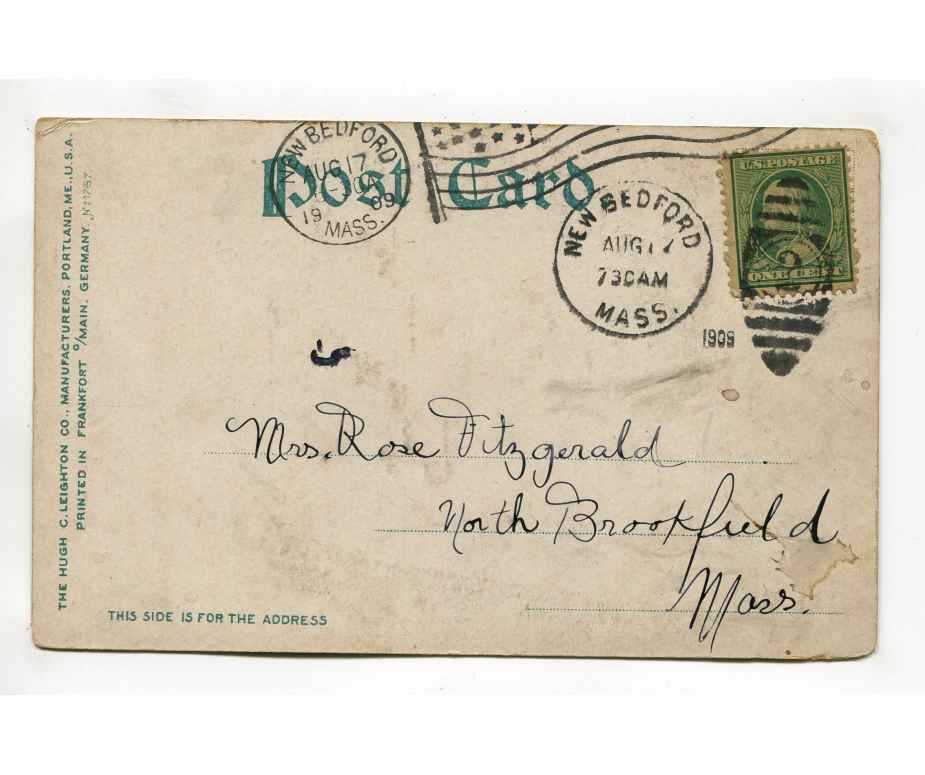 THE HUGH C. LEIGHTON CO., MANUFACTURERS, PORTLAND, ME., U.S.A.
PRINTED IN FRANKFORT o/MAIN, GERMANY.
Post Card
NEW BEDFORD
AUG 17
19 09
MASS.
NEW BEDFORD
AUG 17
730AM
MASS.
1909
U.S. POSTAGE
2
ONE CENT
Mrs. Rose Fitzgerald
North Brookfield
Mass.
THIS SIDE IS FOR THE ADDRESS